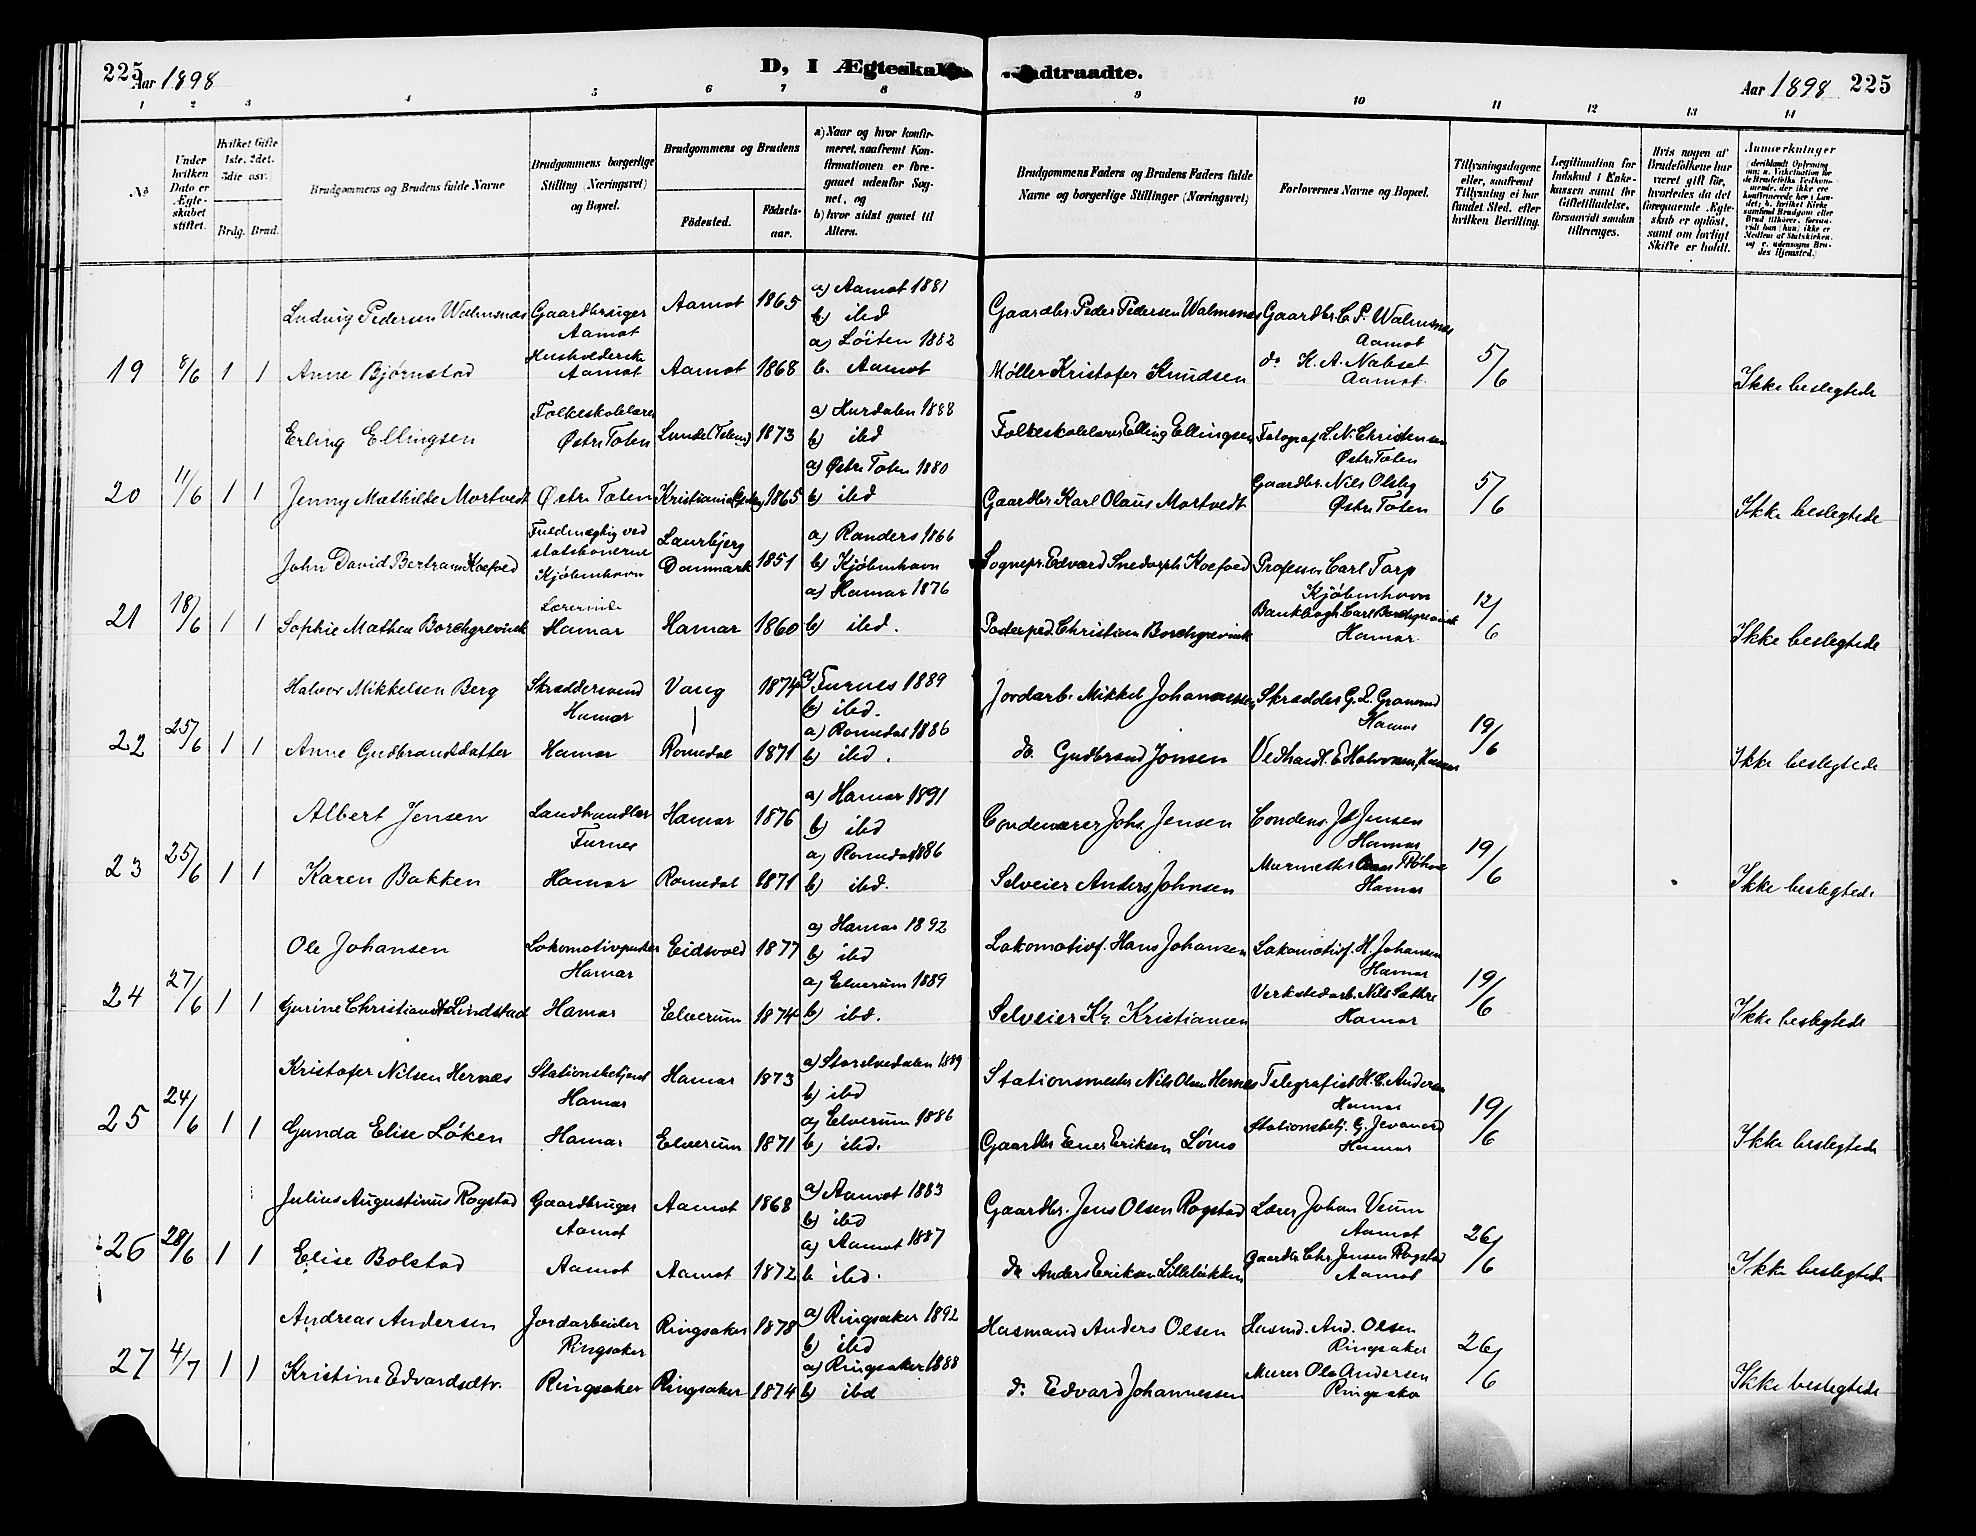 225
Aar 1898
D, I Ægteska
dtraadte.
Aar 1898 225
1 2 3 4 5 6 7 8 9 10 11 12 13 14
No
Under hvilken Dato er Ægteskabet stiftet.
Hvilket Gifte 1ste, 2det, 3die osv.
Brdg. Brud.
Brudgommens og Brudens fulde Navne
Brudgommens borgerlige Stilling (Næringsvei) og Bopæl.
Brudgommens og Brudens
Födested.
Födselsaar.
a) Naar og hvor konfirmeret, saafremt Konfirmationen er foregaaet udenfor Sognet, og
b) hvor sidst gaaet til Alters.
Brudgommens Faders og Brudens Faders fulde Navne og borgerlige Stillinger (Næringsvei)
Forlovernes Navne og Bopæl.
Tillysningsdagene eller, saafremt Tillysning ei har fundet Sted, efter hvilken Bevilling.
Legitimation for Indskud i Enkekassen samt for Giftetilladelse, forsaavidt saadan tiltrænges.
Hvis nogen af Brudefolkene har været gift för, hvorledes da det foregaaende Ægteskab er oplöst, samt om lovligt Skifte er holdt.
Anmærkninger
Ludvig Pedersen Walmsnæs Gaardbruger Aamot Aamot 1865 a) Aamot 1881 b) ibd Gaardbr. Peder Pedersen Walmsnæs Gaardbr. C. P. Walmsnæs Aamot
19 8/6 1 1 Anne Bjørnstad Husholderske Aamot Aamot 1868 a) Løiten 1882 b. Aamot Møller Kristofer Knudsen do K. A. Nabset Aamot 5/6 Ikke beslegtede
Erling Ellingsen Folkeskolelærer Østre Toten Lunde (Telem) 1873 a) Hurdalen 1888 b) ibd Folkeskolelærer Elling Ellingsen Fotograf L. N. Christensen Østre Toten
20 11/6 1 1 Jenny Mathilde Mortvedt Østre Toten Kristiania 1865 a) Østre Toten 1880 b) ibd Gaardbr Karl Olaus Mortvedt Gaardbr. Nils Olsby Østre Toten 5/6 Ikke beslegtede
John David Bertram Koefoed Fuldmægtig ved statsbanerne Kjøbenhavn Laurbjerg Danmark 1851 a) Randers 1866 b) Kjøbenhavn Sognepr. Edvard Snedorph Koefoed Professor Carl Torp Kjøbenhavn
21 18/6 1 1 Sophie Mathea Borchgrevink Lærerinde Hamar Hamar 1860 a) Hamar 1876 b) ibd. Postexped. Christian Borchgrevink Bankbogh. Carl Borchgrevink Hamar. 12/6 Ikke beslegtede
Halvor Mikkelsen Berg Skræddersvend Hamar Vang 1874 a) Furnes 1889 b) ibd. Jordarb. Mikkel Johannessen Skrædder G. L. Granerud Hamar
22 25/6 1 1 Anne Gudbrandsdatter Hamar Romedal 1871 a) Romedal 1886 b) ibd. do. Gudbrand Jonsen Vedhandl. E Halvorsen, Hamar 19/6 Ikke beslegtede
Albert Jensen Landhandler Furnes Hamar 1876 a) Hamar 1891 b) ibd Johs. Jensen Jensen Hamar
23 25/6 1 1 Karen Bakken Hamar Romedal 1871 a) Romedal 1886 b) ibd. Selveier Anders Johnsen Murmester Hamar 19/6 Ikke beslegtede
Ole Johansen Lokomotivpudser Hamar Eidsvold 1877 a) Hamar 1892 b) ibd Lokomotivf. Hans Johansen Lokomotivf. H. Johansen Hamar
24 27/6 1 1 Gurine Lindstad Hamar Elverum 1874 a) Elverum 1889 b) ibd. Selveier Kr. Kristiansen Verkstedarb. Nils Sæthre Hamar 19/6 Ikke beslegtede
Kristofer Nilsen Hernæs Stationsbetjent Hamar Hamar 1873 a) Storelvedalen 1889 b) ibd Stationsmester Nils Olsen Hernes Telegrafist H. C. Andersen Hamar
25 24/6 1 1 Gunda Elise Løken Hamar Elverum 1871 a) Elverum 1886 b) ibd. Gaardbr Ener Eriksen Stationsbetj. G. Jevanord Hamar 19/6 Ikke beslegtede
Julius Augustinus Rogstad Gaardbruger Aamot Aamot 1868 a) Aamot 1883 b) ibd Gaardbr. Jens Olsen Rogstad Lærer Johan Veum Aamot
26 28/6 1 1 Elise Bolstad Aamot Aamot 1872 a) Aamot 1887 b ibd. do Anders Eriksen Lilleløkken Gaardbr Chr. Jensen Rogstad Aamot 26/6 Ikke beslegtede
Andreas Andersen Jordarbeider Ringsaker Ringsaker 1878 a) Ringsaker 1892 b) ibd Husmand Anders Olsen Husmd. And. Olsen Ringsaker
27 4/7 1 1 Kristine Edvardsdtr. Ringsaker Ringsaker 1874 a) Ringsaker 1888 b) ibd d. Edvard Johannessen Murer Ole Andersen Ringsaker 26/6 Ikke beslegtede